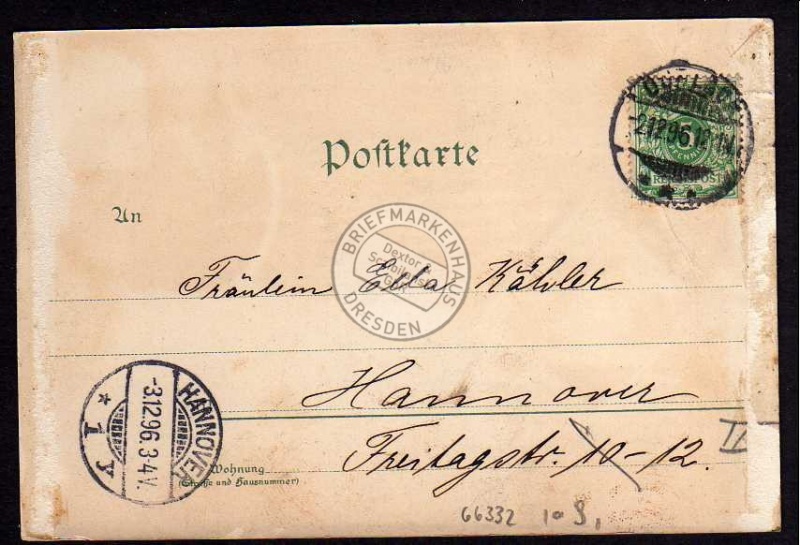 Postkarte
2.12.96.12
5
REICHSPOST
An
BRIEFMARKENHAUS
Dextor &
DRESDEN
Fräulein Ella
Hannover
Freitagstr. 10-12.
II
HANNOVER
-3.12.96.3-4V.
* 1 *
Wohnung
(Straße und Hausnummer)
66332